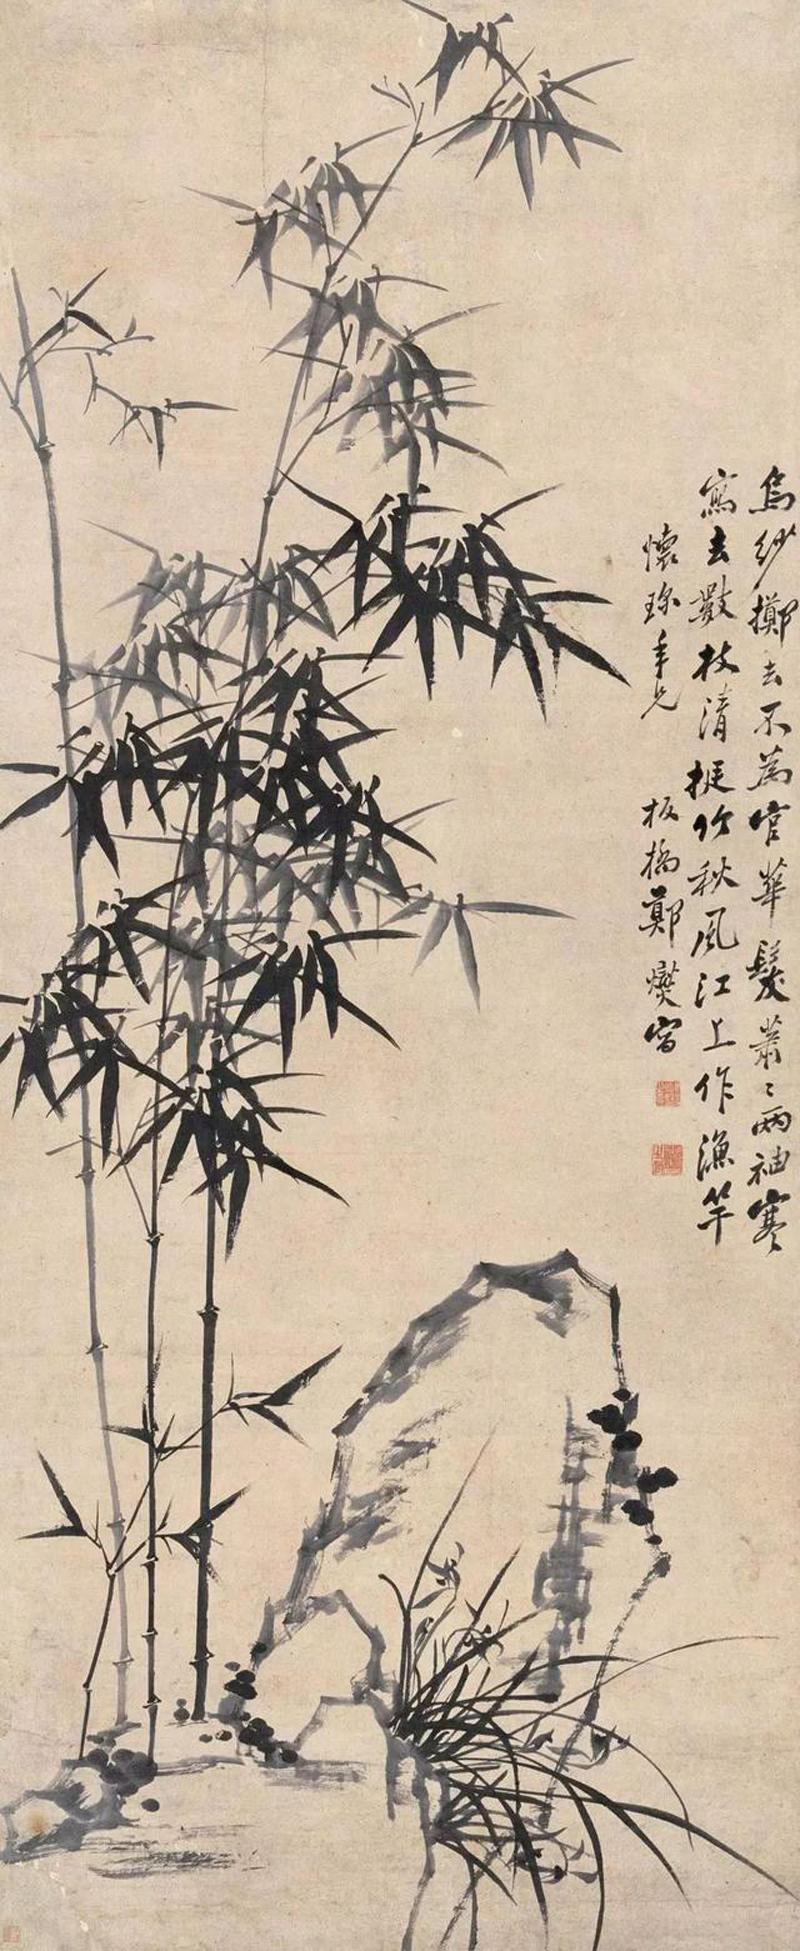 烏紗擲去不為官華髮蕭〻兩袖寒
寫去數枝清挺竹秋風江上作漁竿
懷珍年兄 板橋鄭燮寫